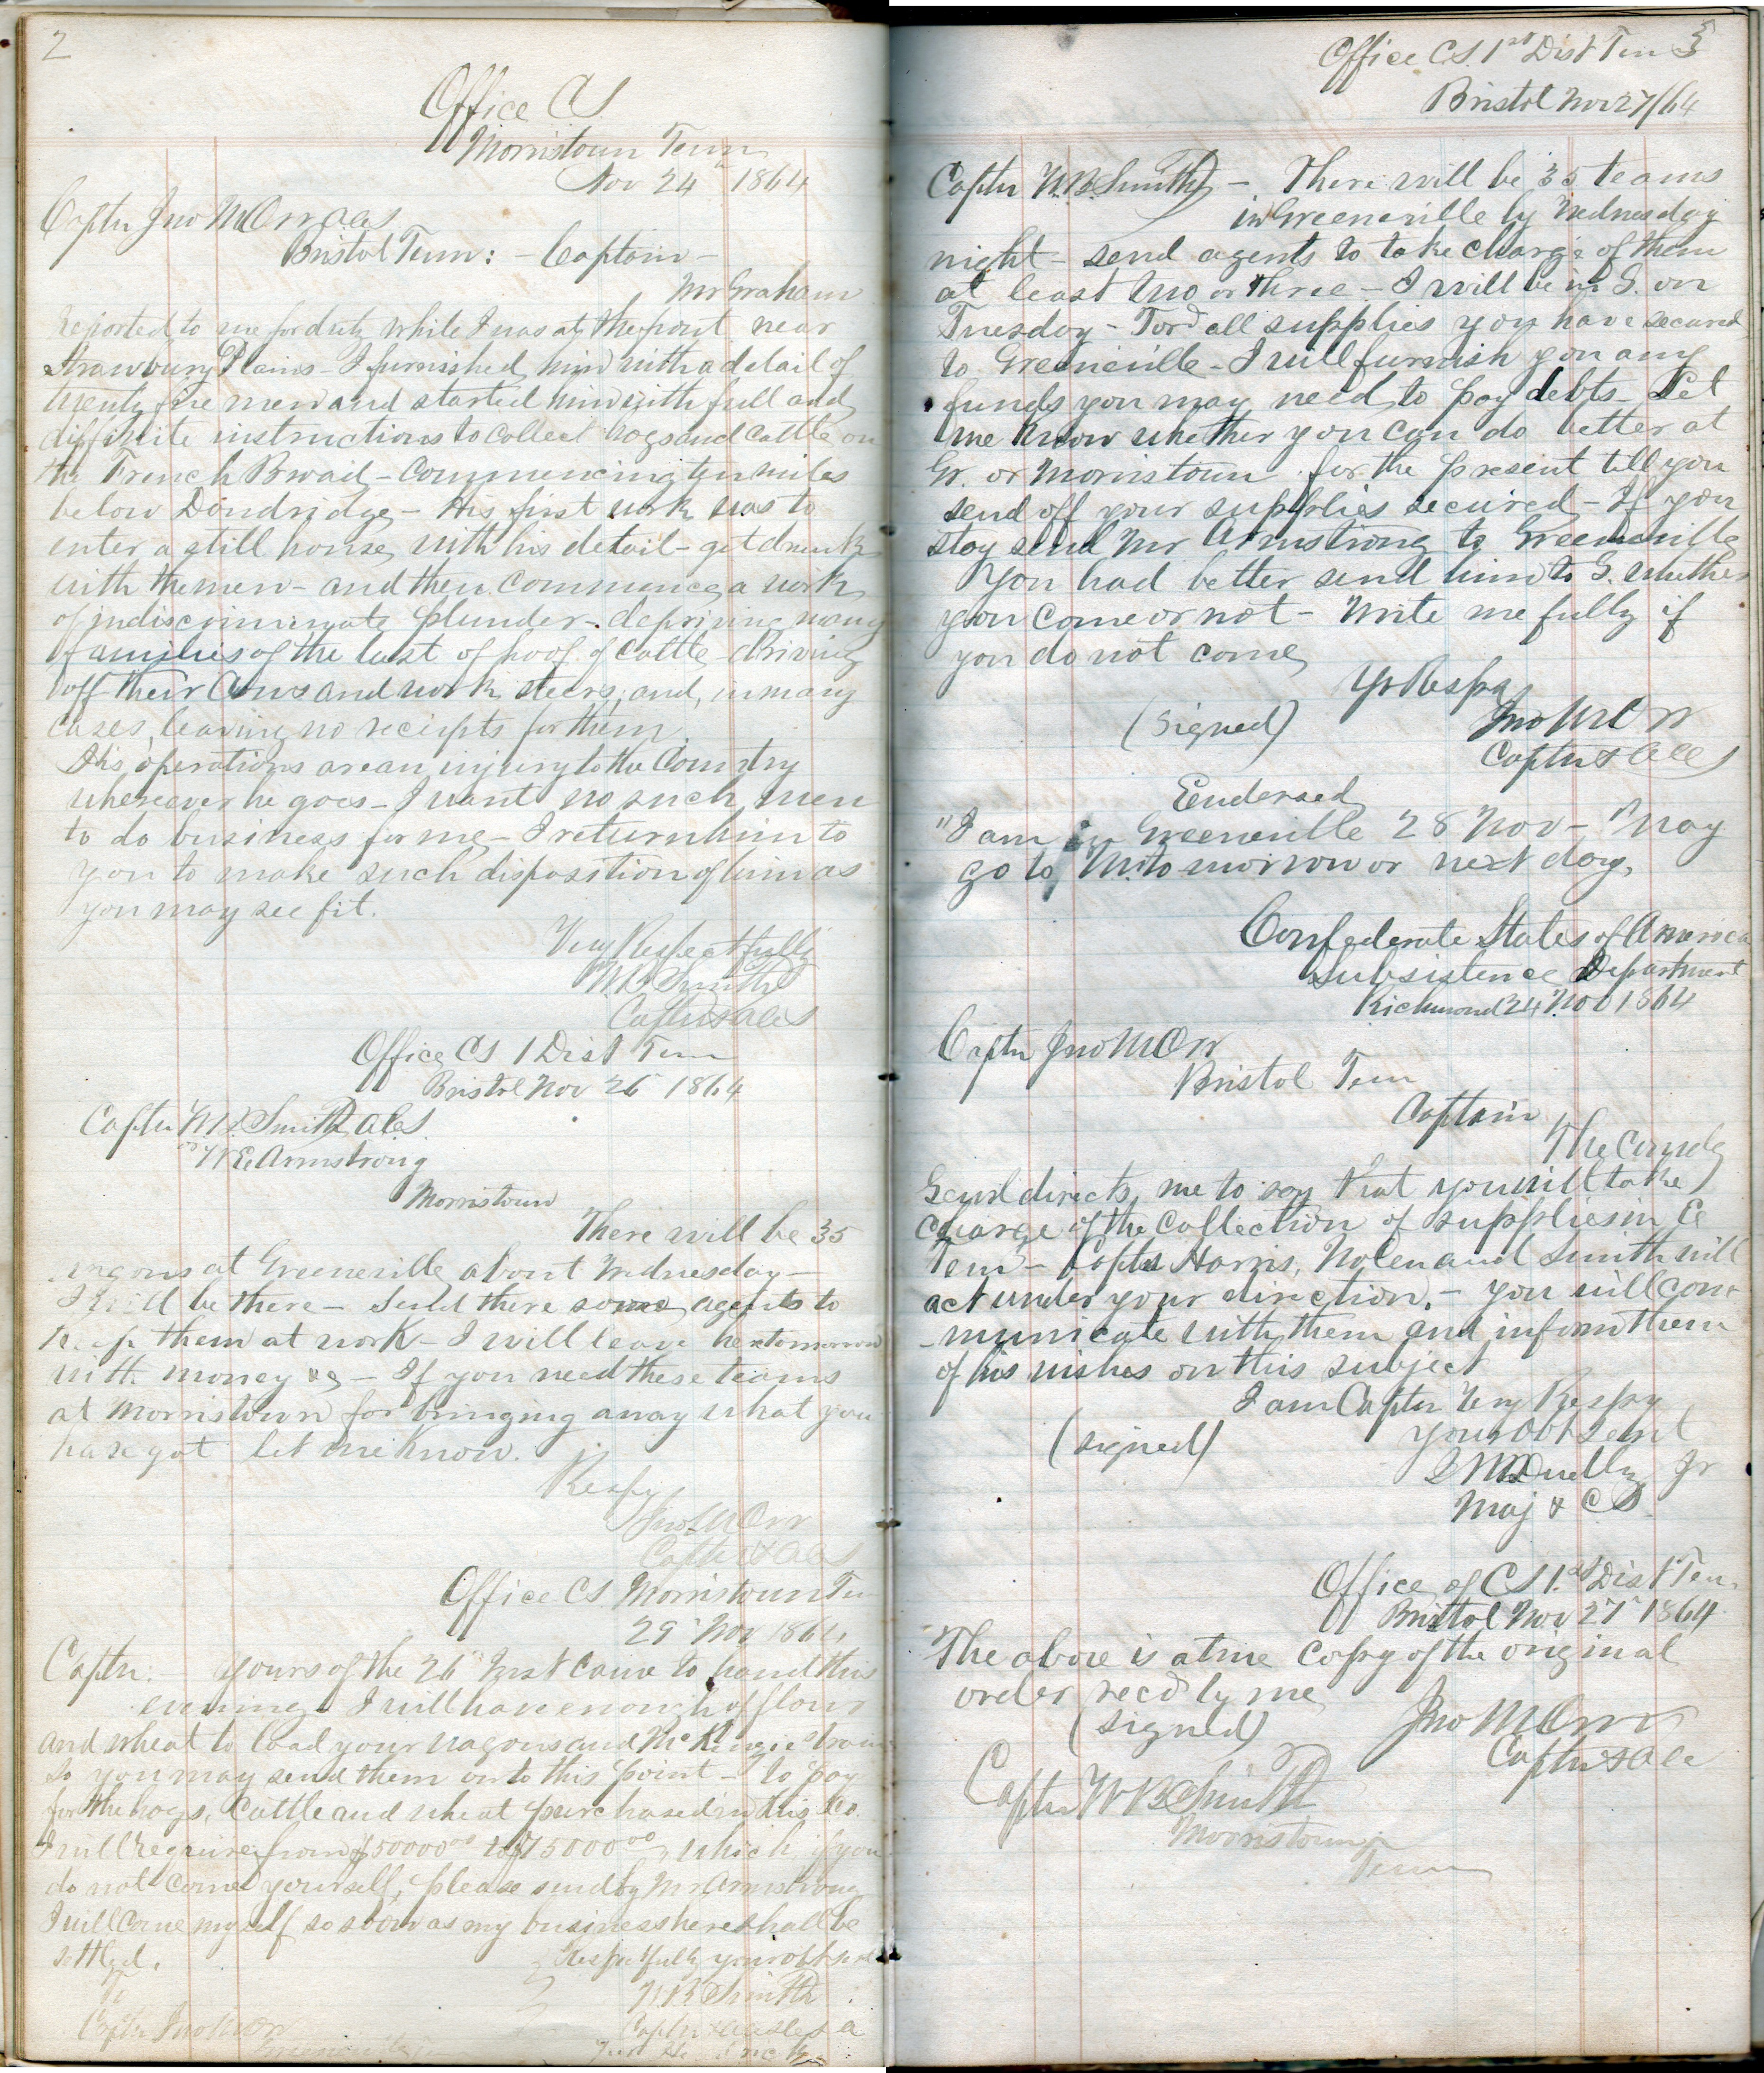 2
Office CS
Morristown Tenn
Nov 24" 1864
Captn Jno M Orr acs
Bristol Tenn: - Captain -
Mr Graham
reported to me for duty while I was at the front near
Strawbury Plains - I furnished him with a detail of
twenty five men and started him with full and
diffinite instructions to collect hogs and cattle on
the French Broad - commencing ten miles
below Dandridge - His first work was to
enter a still house, with his detail - get drunk
with the men - and then commence a work
of indiscriminate plunder - depriving many
families of the last of hoof of cattle - driving
off their cows and work steers, and, in many
cases, leaving no receipts for them.
His operations are an injury to the Country
whereever he goes - I want no such men
to do business for me - I return him to
you to make such disposition of him as
you may see fit.
Very Respectfully
W B Smith
Captn & acs
Office CS 1 Dist Tenn
Bristol Nov 26" 1864
Captn W B Smith acs
" W E Armstrong
Morristown
There will be 35
wagons at Greeneville about Wednesday -
I will be there - Send there some agents to
keep them at work - I will leave here tomorrow
with money &c - If you need these teams
at Morristown for bringing away what you
have got let me know.
Respy
Jno M Orr
Captn & acs
Office CS Morristown Ten
29" Nov 1864
Captn: - Yours of the 26" Inst came to hand this
evening. I will have enough of flour
and wheat to load your wagons and McKenzie's train
so you may send them on to this point - To pay
for the hogs, cattle and wheat purchased in this Co.
I will require from $50000⁰⁰ to $75000⁰⁰, which, if you
do not come yourself, please send by Mr Armstrong
I will come myself so soon as my business here shall be
settled.
Respectfully your obt servt
To
W. B Smith
Captn Jno M Orr
Captn &
Greeneville
Office CS. 1st Dist Ten 3
Bristol Nov 27/64
Captn W. B. Smith - There will be 35 teams
in Greeneville by Wednesday
night - send agents to take charge of them
at least two or three - I will be in G. on
Tuesday - Ford all supplies you have secured
to Greeneville - I will furnish you any
funds you may need to pay debts - Let
me know whether you can do better at
Gr. or Morristown for the present till you
send off your supplies secured - If you
stay send Mr Armstrong to Greeneville
You had better send him to G. whether
you come or not - Write me fully if
you do not come
Yr Respy
(signed) Jno M Orr
Captn & acs
Eendersed
"I am in Greeneville 28 Nov - May
go to M. to morrow or next day,
Confederate States of America
Subsistence Department
Richmond 24" Nov 1864
Captn Jno M Orr
Bristol Tenn
Captain
The Comdg
Genrl directs, me to say that you will take
charge of the collection of supplies in E
Tenn - Captns Harris, Nolen and Smith will
act under your direction. - you will com
-municate with them and inform them
of his wishes on this subject
I am Captn Very Respy
your obt servt
(signed)
Jr
Maj & CS
Office of CS 1.st Dist Ten.
Bristol Nov 27" 1864
The above is a true copy of the original
order recd by me
(signed) Jno M Orr
Captn & acs
Captn W B Smith
Morristown
Tenn